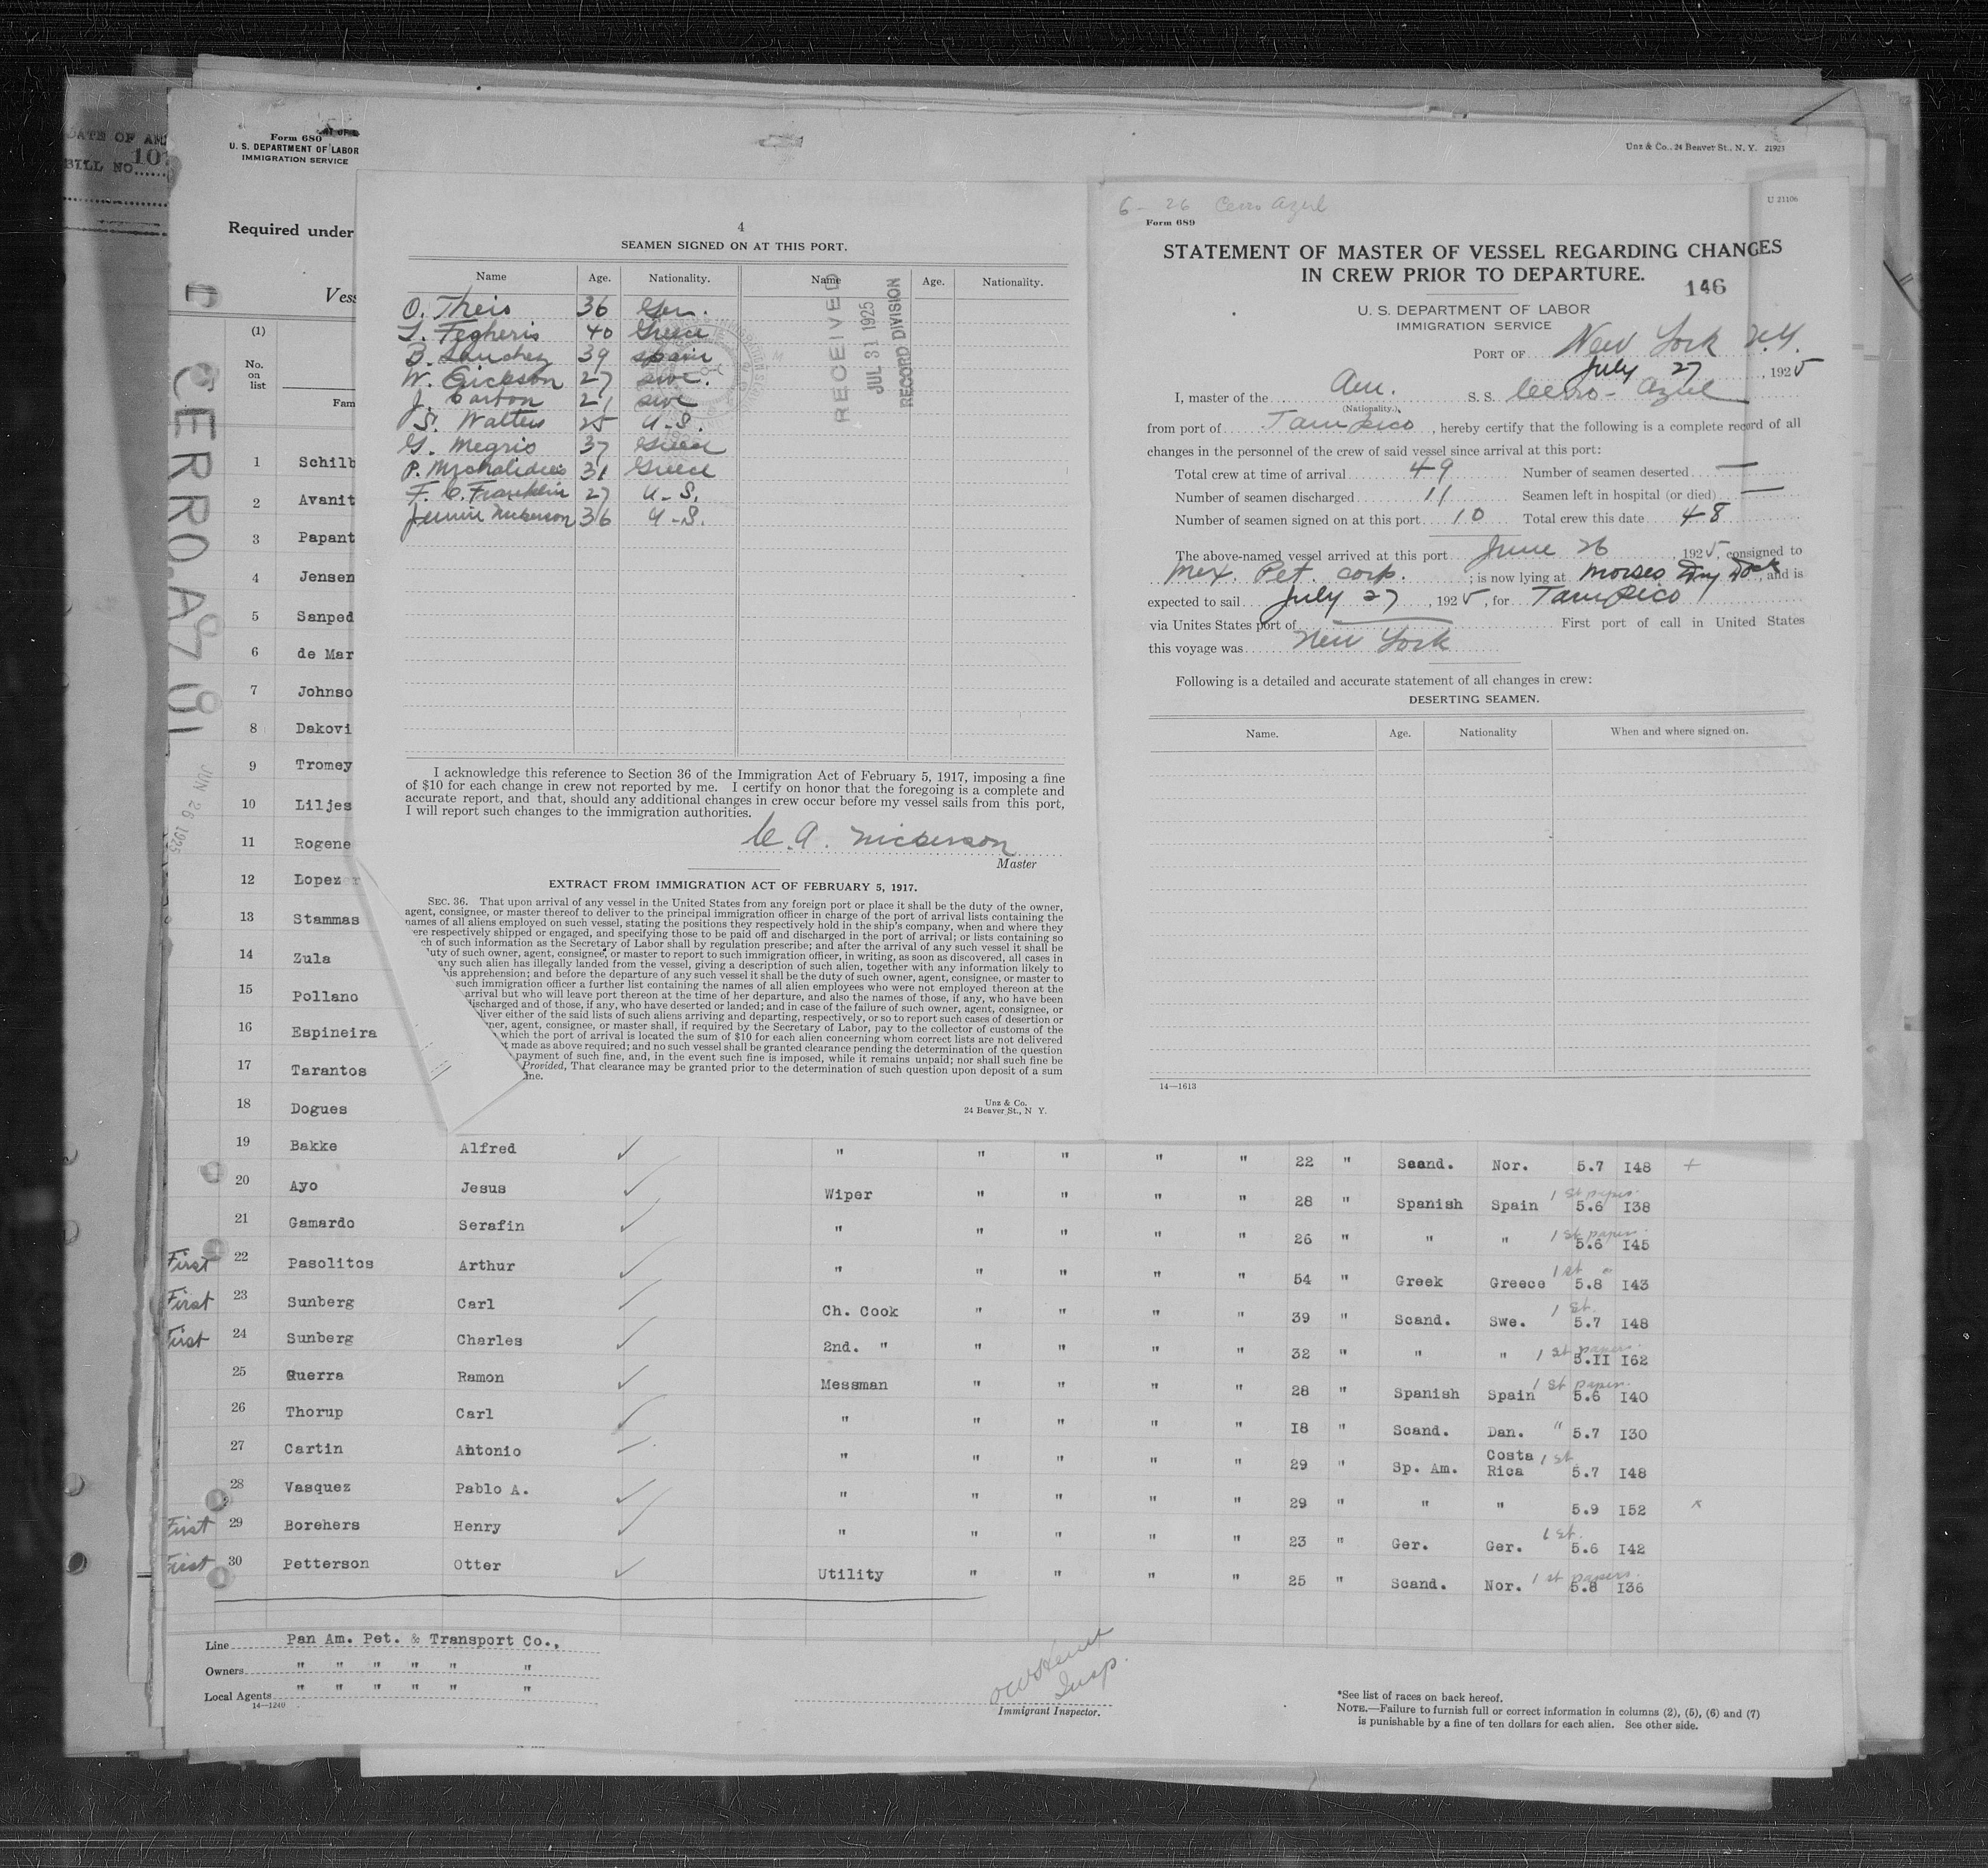 DATE OF
BILL NO. 107
Form 680
U. S. DEPARTMENT OF LABOR
IMMIGRATION SERVICE
Unz & Co., 24 Beaver St., N. Y. 21923
Required under
(1)
No.
on
list
Fam
CERRO AZUL
JUN 26 1925
1 Schilb
2 Avanit
3 Papant
4 Jensen
5 Sanped
6 de Mar
7 Johnso
8 Dakovi
9 Tromey
10 Liljes
11 Rogene
12 Lopez
13 Stammas
14 Zula
15 Pollano
16 Espineira
17 Tarantos
18 Dogues
4
SEAMEN SIGNED ON AT THIS PORT.
Name Age. Nationality. Name Age. Nationality.
O. Theis 36 Ger.
T. Fegheris 40 Greece
B. Sanchez 39 Spain
W. Erickson 27 swe.
J. Carbon 21 swe
S. Walters 25 U.S.
G. Megris 37 Greece
P. Mychalidies 31 Greece
F. C. Franklin 27 U-S.
Jennie Nickerson 36 U-S.
RECEIVED
JUL 31 1925
RECORD DIVISION
I acknowledge this reference to Section 36 of the Immigration Act of February 5, 1917, imposing a fine
of $10 for each change in crew not reported by me. I certify on honor that the foregoing is a complete and
accurate report, and that, should any additional changes in crew occur before my vessel sails from this port,
I will report such changes to the immigration authorities.
C. A. Nickerson
Master
EXTRACT FROM IMMIGRATION ACT OF FEBRUARY 5, 1917.
SEC. 36. That upon arrival of any vessel in the United States from any foreign port or place it shall be the duty of the owner,
agent, consignee, or master thereof to deliver to the principal immigration officer in charge of the port of arrival lists containing the
names of all aliens employed on such vessel, stating the positions they respectively hold in the ship's company, when and where they
were respectively shipped or engaged, and specifying those to be paid off and discharged in the port of arrival; or lists containing so
ch of such information as the Secretary of Labor shall by regulation prescribe; and after the arrival of any such vessel it shall be
duty of such owner, agent, consignee, or master to report to such immigration officer, in writing, as soon as discovered, all cases in
any such alien has illegally landed from the vessel, giving a description of such alien, together with any information likely to
his apprehension; and before the departure of any such vessel it shall be the duty of such owner, agent, consignee, or master to
such immigration officer a further list containing the names of all alien employees who were not employed thereon at the
arrival but who will leave port thereon at the time of her departure, and also the names of those, if any, who have been
discharged and of those, if any, who have deserted or landed; and in case of the failure of such owner, agent, consignee, or
eliver either of the said lists of such aliens arriving and departing, respectively, or so to report such cases of desertion or
ner, agent, consignee, or master shall, if required by the Secretary of Labor, pay to the collector of customs of the
which the port of arrival is located the sum of $10 for each alien concerning whom correct lists are not delivered
t made as above required; and no such vessel shall be granted clearance pending the determination of the question
payment of such fine, and, in the event such fine is imposed, while it remains unpaid; nor shall such fine be
Provided, That clearance may be granted prior to the determination of such question upon deposit of a sum
ine.
Unz & Co.
24 Beaver St., N Y.
6-26 Cerro Azul
U 21106
Form 689
STATEMENT OF MASTER OF VESSEL REGARDING CHANGES
IN CREW PRIOR TO DEPARTURE.
146
U. S. DEPARTMENT OF LABOR
IMMIGRATION SERVICE
PORT OF New York N.Y.
July 27, 1925
I, master of the Am. S. S. Cerro-Azul
(Nationality.)
from port of Tampico, hereby certify that the following is a complete record of all
changes in the personnel of the crew of said vessel since arrival at this port:
Total crew at time of arrival 49 Number of seamen deserted —
Number of seamen discharged 11 Seamen left in hospital (or died) —
Number of seamen signed on at this port 10 Total crew this date 48
The above-named vessel arrived at this port June 26, 1925, consigned to
Mex. Pet. Corp. ; is now lying at Morses Dry Dock, and is
expected to sail July 27, 1925, for Tampico
via Unites States port of —. First port of call in United States
this voyage was New York
Following is a detailed and accurate statement of all changes in crew:
DESERTING SEAMEN.
Name. Age. Nationality When and where signed on.
14—1613
19 Bakke Alfred " " " " " 22 " Scand. Nor. 5.7 I48 +
20 Ayo Jesus Wiper " " " " 28 " Spanish Spain 1st paper. 5.6 I38
21 Gamardo Serafin " " " " " 26 " " " 1st paper 5.6 I45
First 22 Pasolitos Arthur " " " " " 54 " Greek Greece 1st " 5.8 I43
First 23 Sunberg Carl Ch. Cook " " " " 39 " Scand. Swe. 1st. 5.7 I48
First 24 Sunberg Charles 2nd. " " " " " 32 " " " 1st papers. 5.II I62
25 Guerra Ramon Messman " " " " 28 " Spanish Spain 1st paper. 5.6 I40
26 Thorup Carl " " " " " I8 " Scand. Dan. " 5.7 I30
27 Cartin Antonio " " " " " 29 " Sp. Am. Costa Rica 1st 5.7 I48
28 Vasquez Pablo A. " " " " " 29 " " " 5.9 I52 x
First 29 Borehers Henry " " " " " 23 " Ger. Ger. 1st. 5.6 I42
First 30 Petterson Otter Utility " " " " 25 " Scand. Nor. 1st papers. 5.8 I36
Line Pan Am. Pet. & Transport Co.,
Owners " " " " " "
Local Agents " " " " " "
14—1240
Insp.
Immigrant Inspector.
*See list of races on back hereof.
NOTE.—Failure to furnish full or correct information in columns (2), (5), (6) and (7)
is punishable by a fine of ten dollars for each alien. See other side.